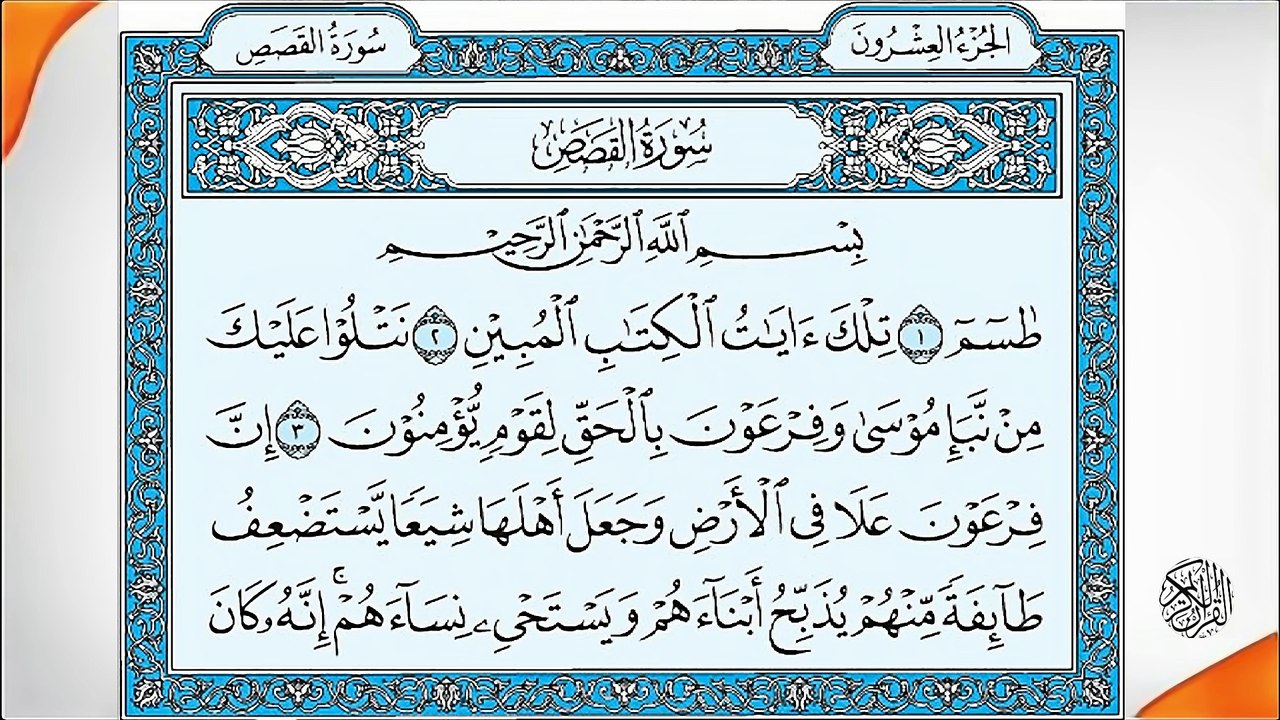 الجُزْءُ العِشْرُونَ
سُورَةُ القَصَصِ
سُورَةُ القَصَصِ
بِسْمِ ٱللَّهِ ٱلرَّحْمَٰنِ ٱلرَّحِيمِ
طسٓمٓ ١ تِلْكَ ءَايَٰتُ ٱلْكِتَٰبِ ٱلْمُبِينِ ٢ نَتْلُوا۟ عَلَيْكَ
مِن نَّبَإِ مُوسَىٰ وَفِرْعَوْنَ بِٱلْحَقِّ لِقَوْمٍ يُؤْمِنُونَ ٣ إِنَّ
فِرْعَوْنَ عَلَا فِى ٱلْأَرْضِ وَجَعَلَ أَهْلَهَا شِيَعًا يَسْتَضْعِفُ
طَآئِفَةً مِّنْهُمْ يُذَبِّحُ أَبْنَآءَهُمْ وَيَسْتَحْىِۦ نِسَآءَهُمْ ۚ إِنَّهُۥ كَانَ
القرآن الكريم